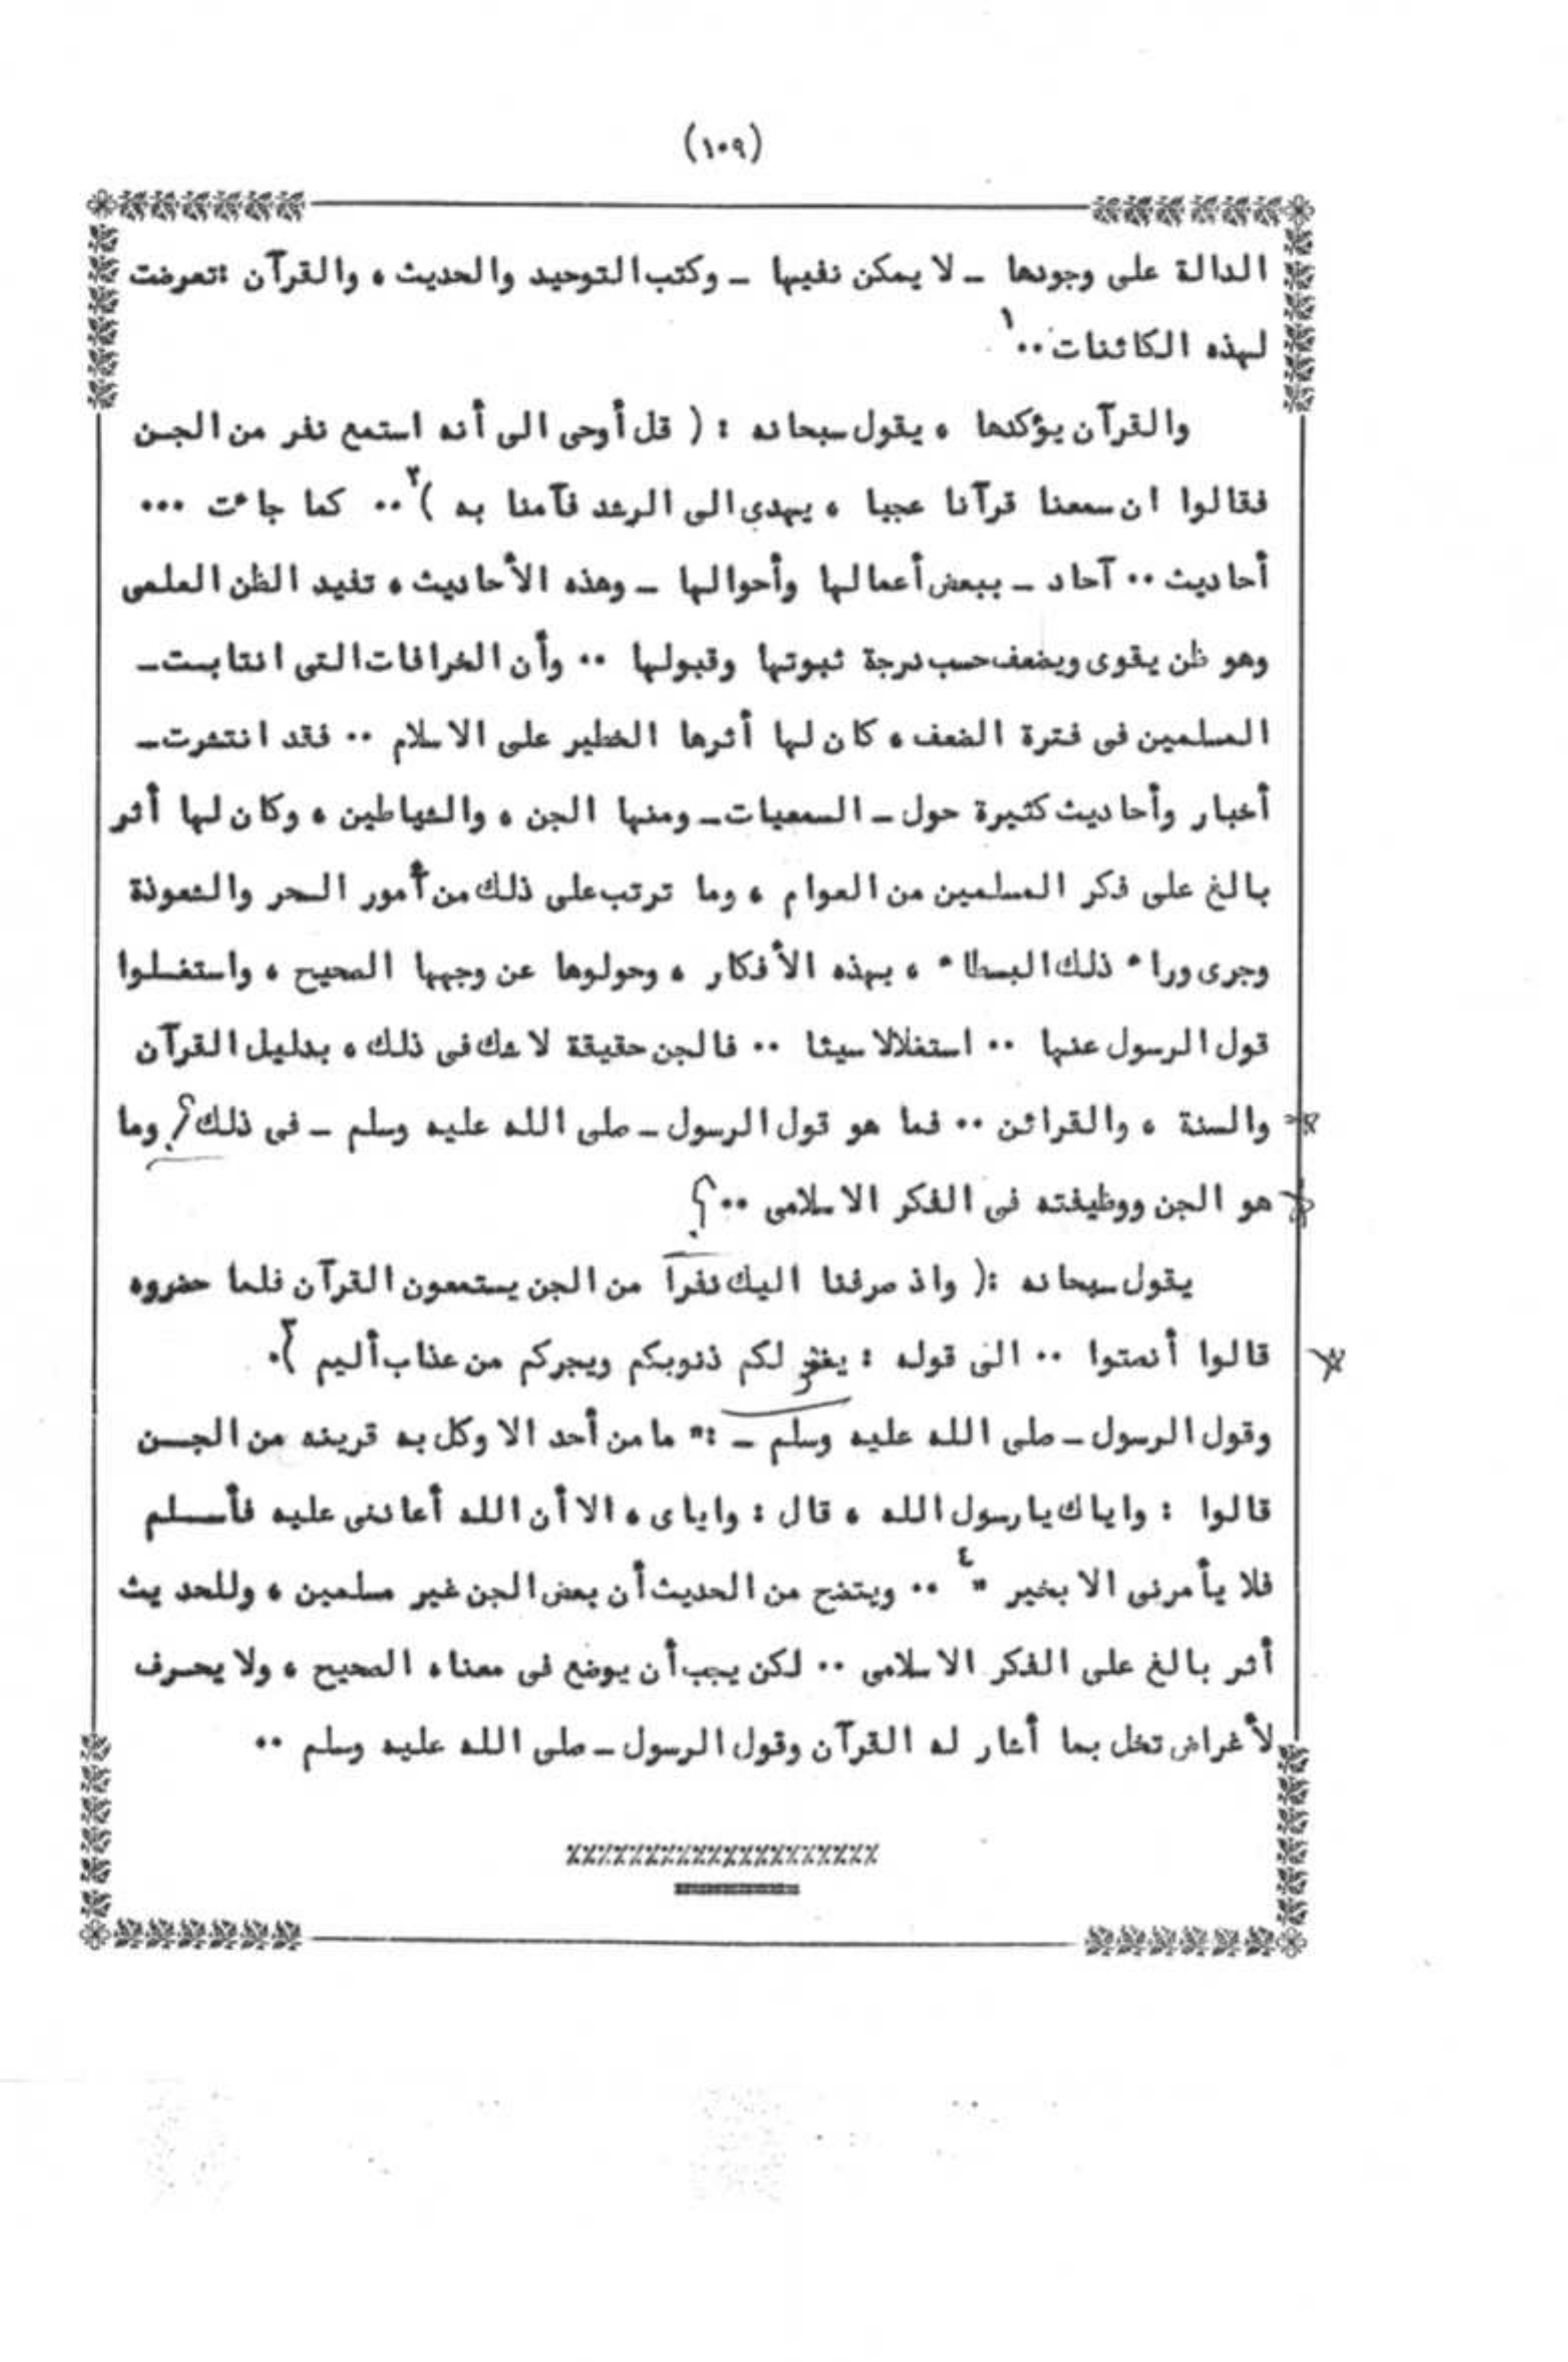 (١٠٩)
الدالة على وجودها ـ لا يمكن نفيها ـ وكتب التوحيد والحديث ، والقرآن :تعرضت
لهذه الكائنات ..١
والقرآن يؤكدها ، يقول سبحانه : ( قل أوحى الى أنه استمع نفر من الجن
فقالوا ان سمعنا قرآنا عجبا ، يهدى الى الرشد فآمنا به )٢ .. كما جاءت ...
أحاديث .. آحاد ـ ببعض أعمالها وأحوالها ـ وهذه الأحاديث ، تفيد الظن العلمى
وهو ظن يقوى ويضعف حسب درجة ثبوتها وقبولها .. وأن الخرافات التى انتابت ـ
المسلمين فى فترة الضعف ، كان لها أثرها الخطير على الاسلام .. فقد انتشرت ـ
أخبار وأحاديث كثيرة حول ـ السمعيات ـ ومنها الجن ، والشياطين ، وكان لها أثر
بالغ على فكر المسلمين من العوام ، وما ترتب على ذلك من أمور السحر والشعوذة
وجرى وراء ذلك البسطاء ، بهذه الأفكار ، وحولوها عن وجهها الصحيح ، واستغلوا
قول الرسول عنها .. استغلالا سيئا .. فالجن حقيقة لا شك فى ذلك ، بدليل القرآن
والسنة ، والقرائن .. فما هو قول الرسول ـ صلى الله عليه وسلم ـ فى ذلك ؟ وما
هو الجن ووظيفته فى الفكر الاسلامى .. ؟
يقول سبحانه :( واذ صرفنا اليك نفرا من الجن يستمعون القرآن فلما حضروه
قالوا أنصتوا .. الى قوله : يغفر لكم ذنوبكم ويجركم من عذاب أليم )٣.
وقول الرسول ـ صلى الله عليه وسلم ـ :" ما من أحد الا وكل به قرينه من الجن
قالوا : واياك يا رسول الله ، قال : واياى ، الا أن الله أعاننى عليه فأسلم
فلا يأمرنى الا بخير "٤ .. ويتضح من الحديث أن بعض الجن غير مسلمين ، وللحديث
أثر بالغ على الفكر الاسلامى .. لكن يجب أن يوضع فى معناه الصحيح ، ولا يحرف
لأغراض تخل بما أشار له القرآن وقول الرسول ـ صلى الله عليه وسلم ..